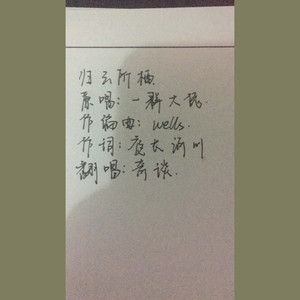 归云所栖
原唱：一群大佬.
作编曲：wells.
作词：鹿长渝川
翻唱：奇谈.